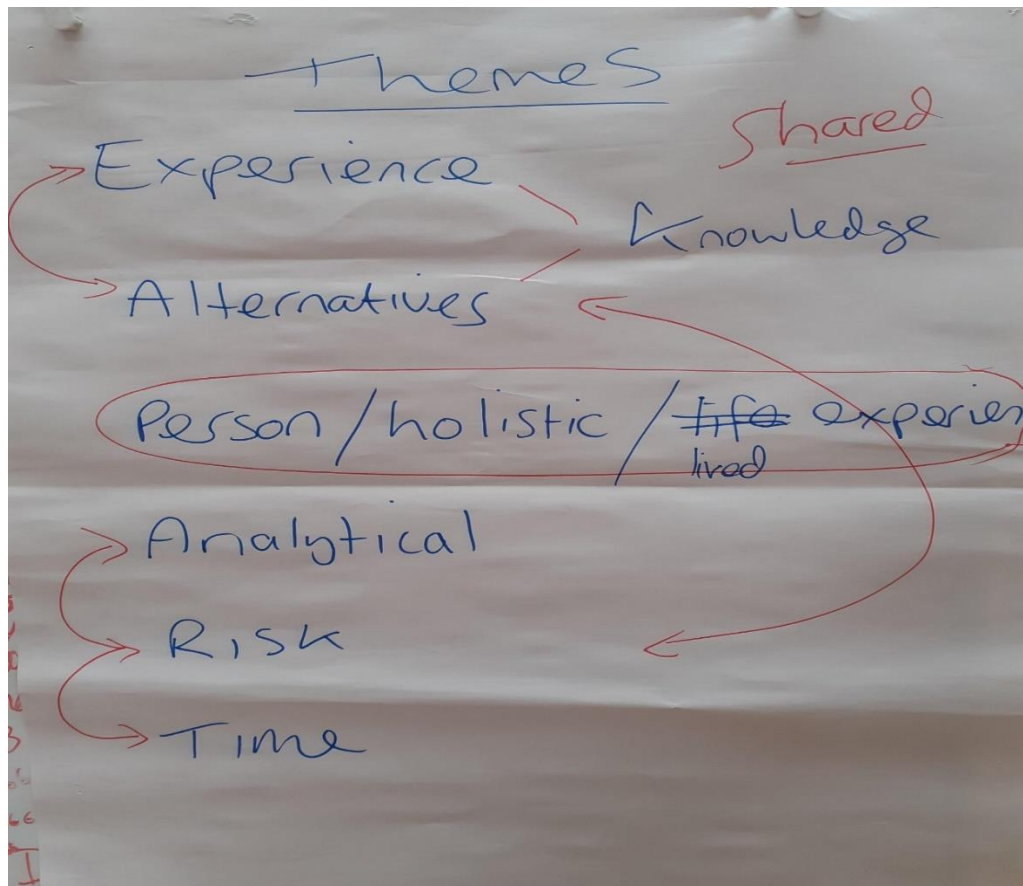 Themes
Shared
Experience
Knowledge
Alternatives
Person / holistic / life experien
lived
Analytical
Risk
Time